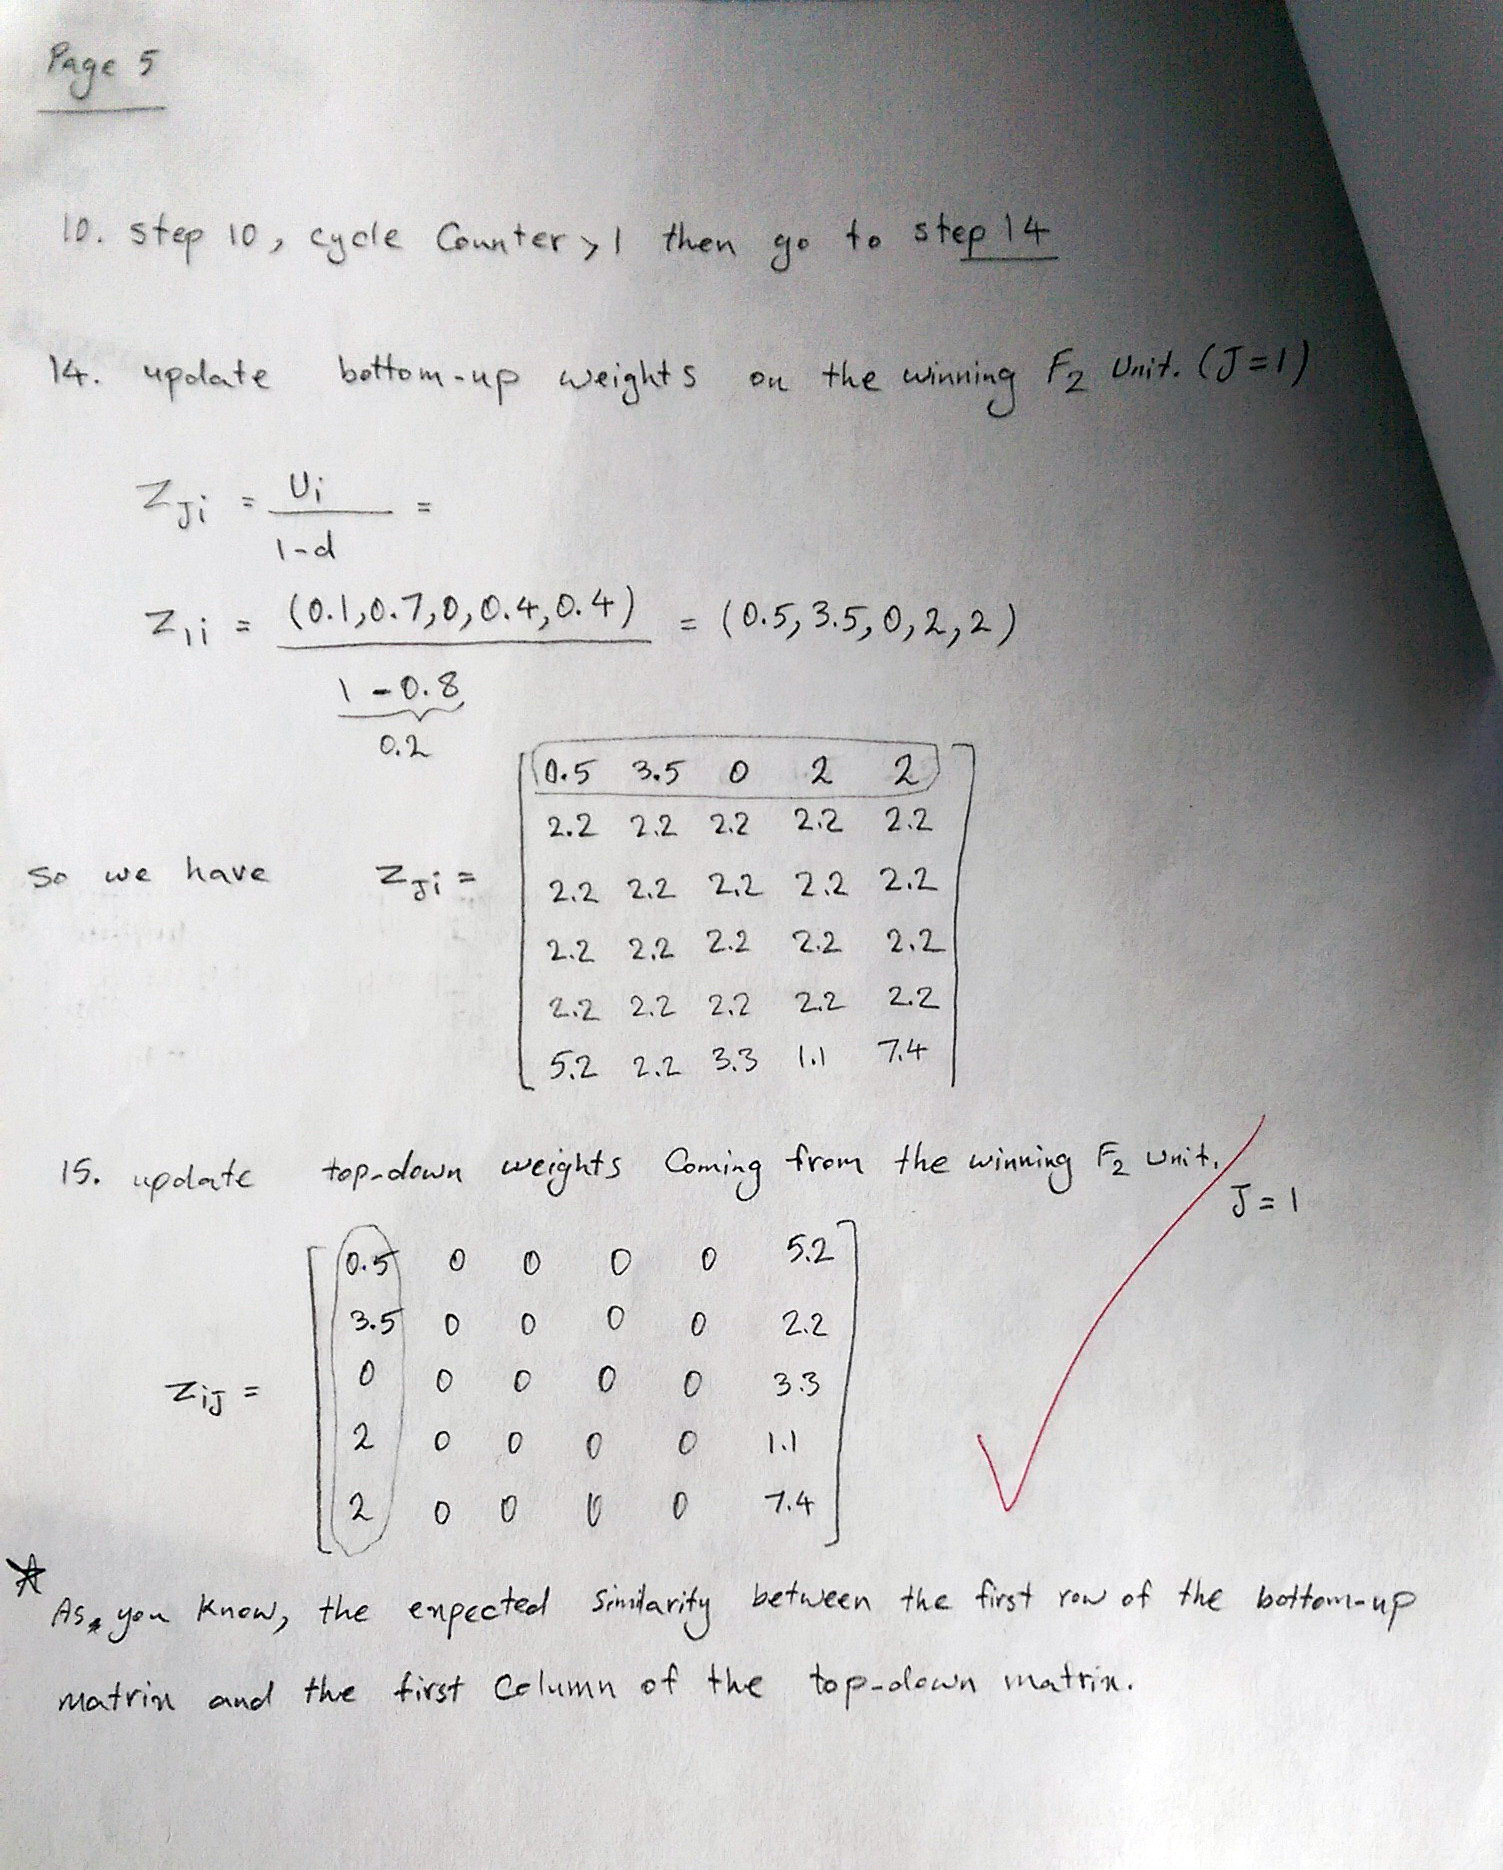 Page 5
10. step 10, cycle Counter > 1 then go to step 14
14. update bottom-up weights on the winning F₂ Unit. (J=1)
Z_Ji = U_i / (1-d) =
Z_1i = (0.1,0.7,0,0.4,0.4) / (1-0.8) = (0.5, 3.5, 0, 2, 2)
0.2
0.5 3.5 0 2 2
2.2 2.2 2.2 2.2 2.2
so we have Z_Ji = 2.2 2.2 2.2 2.2 2.2
2.2 2.2 2.2 2.2 2.2
2.2 2.2 2.2 2.2 2.2
5.2 2.2 3.3 1.1 7.4
15. update top-down weights Coming from the winning F₂ unit.
J = 1
0.5 0 0 0 0 5.2
3.5 0 0 0 0 2.2
Z_iJ = 0 0 0 0 0 3.3
2 0 0 0 0 1.1
2 0 0 0 0 7.4
As you know, the expected Similarity between the first row of the bottom-up
matrix and the first Column of the top-down matrix.